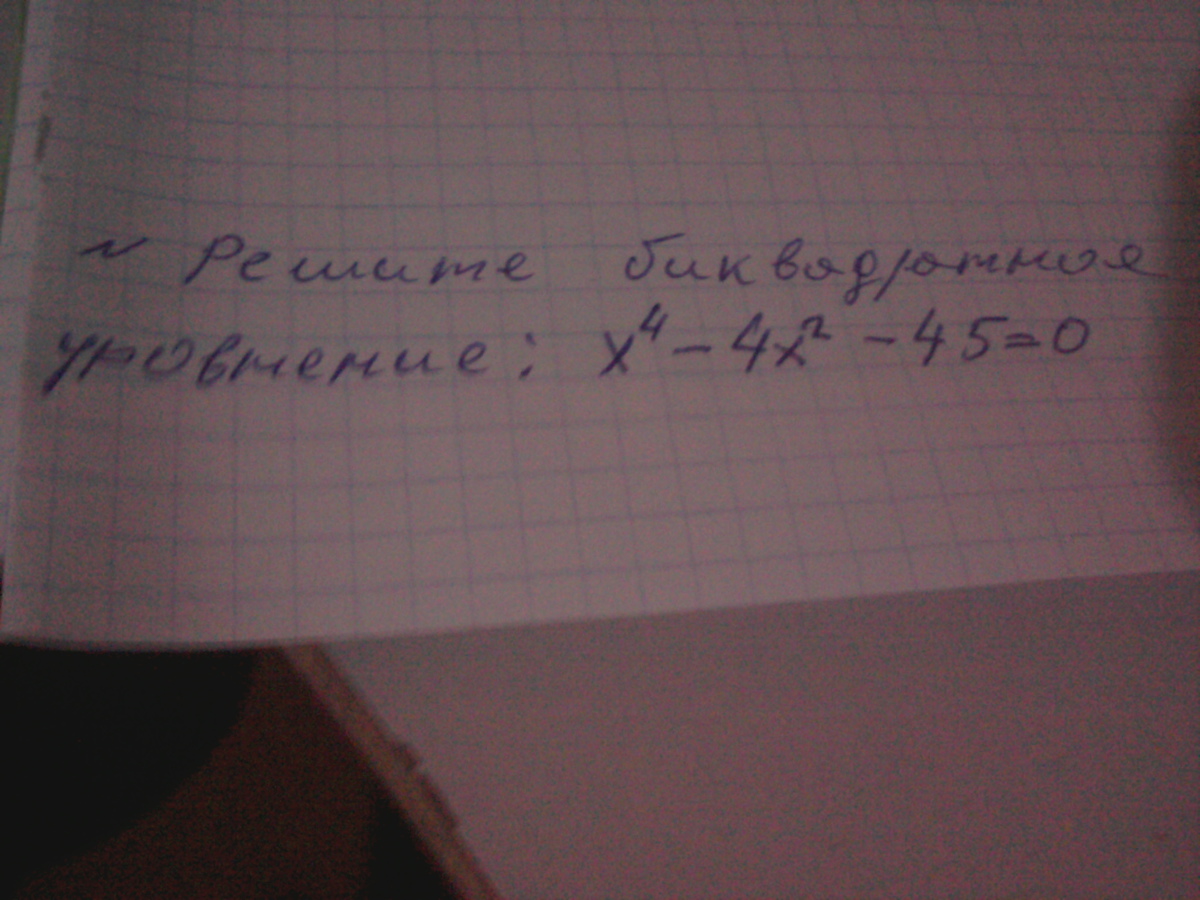 ~ Решите биквадратное
уровнение: x⁴ - 4x² - 45=0